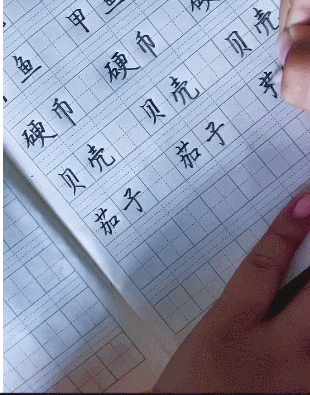 鱼 甲鱼
硬币 硬币 硬
贝壳 贝壳 贝壳
茄子 茄子